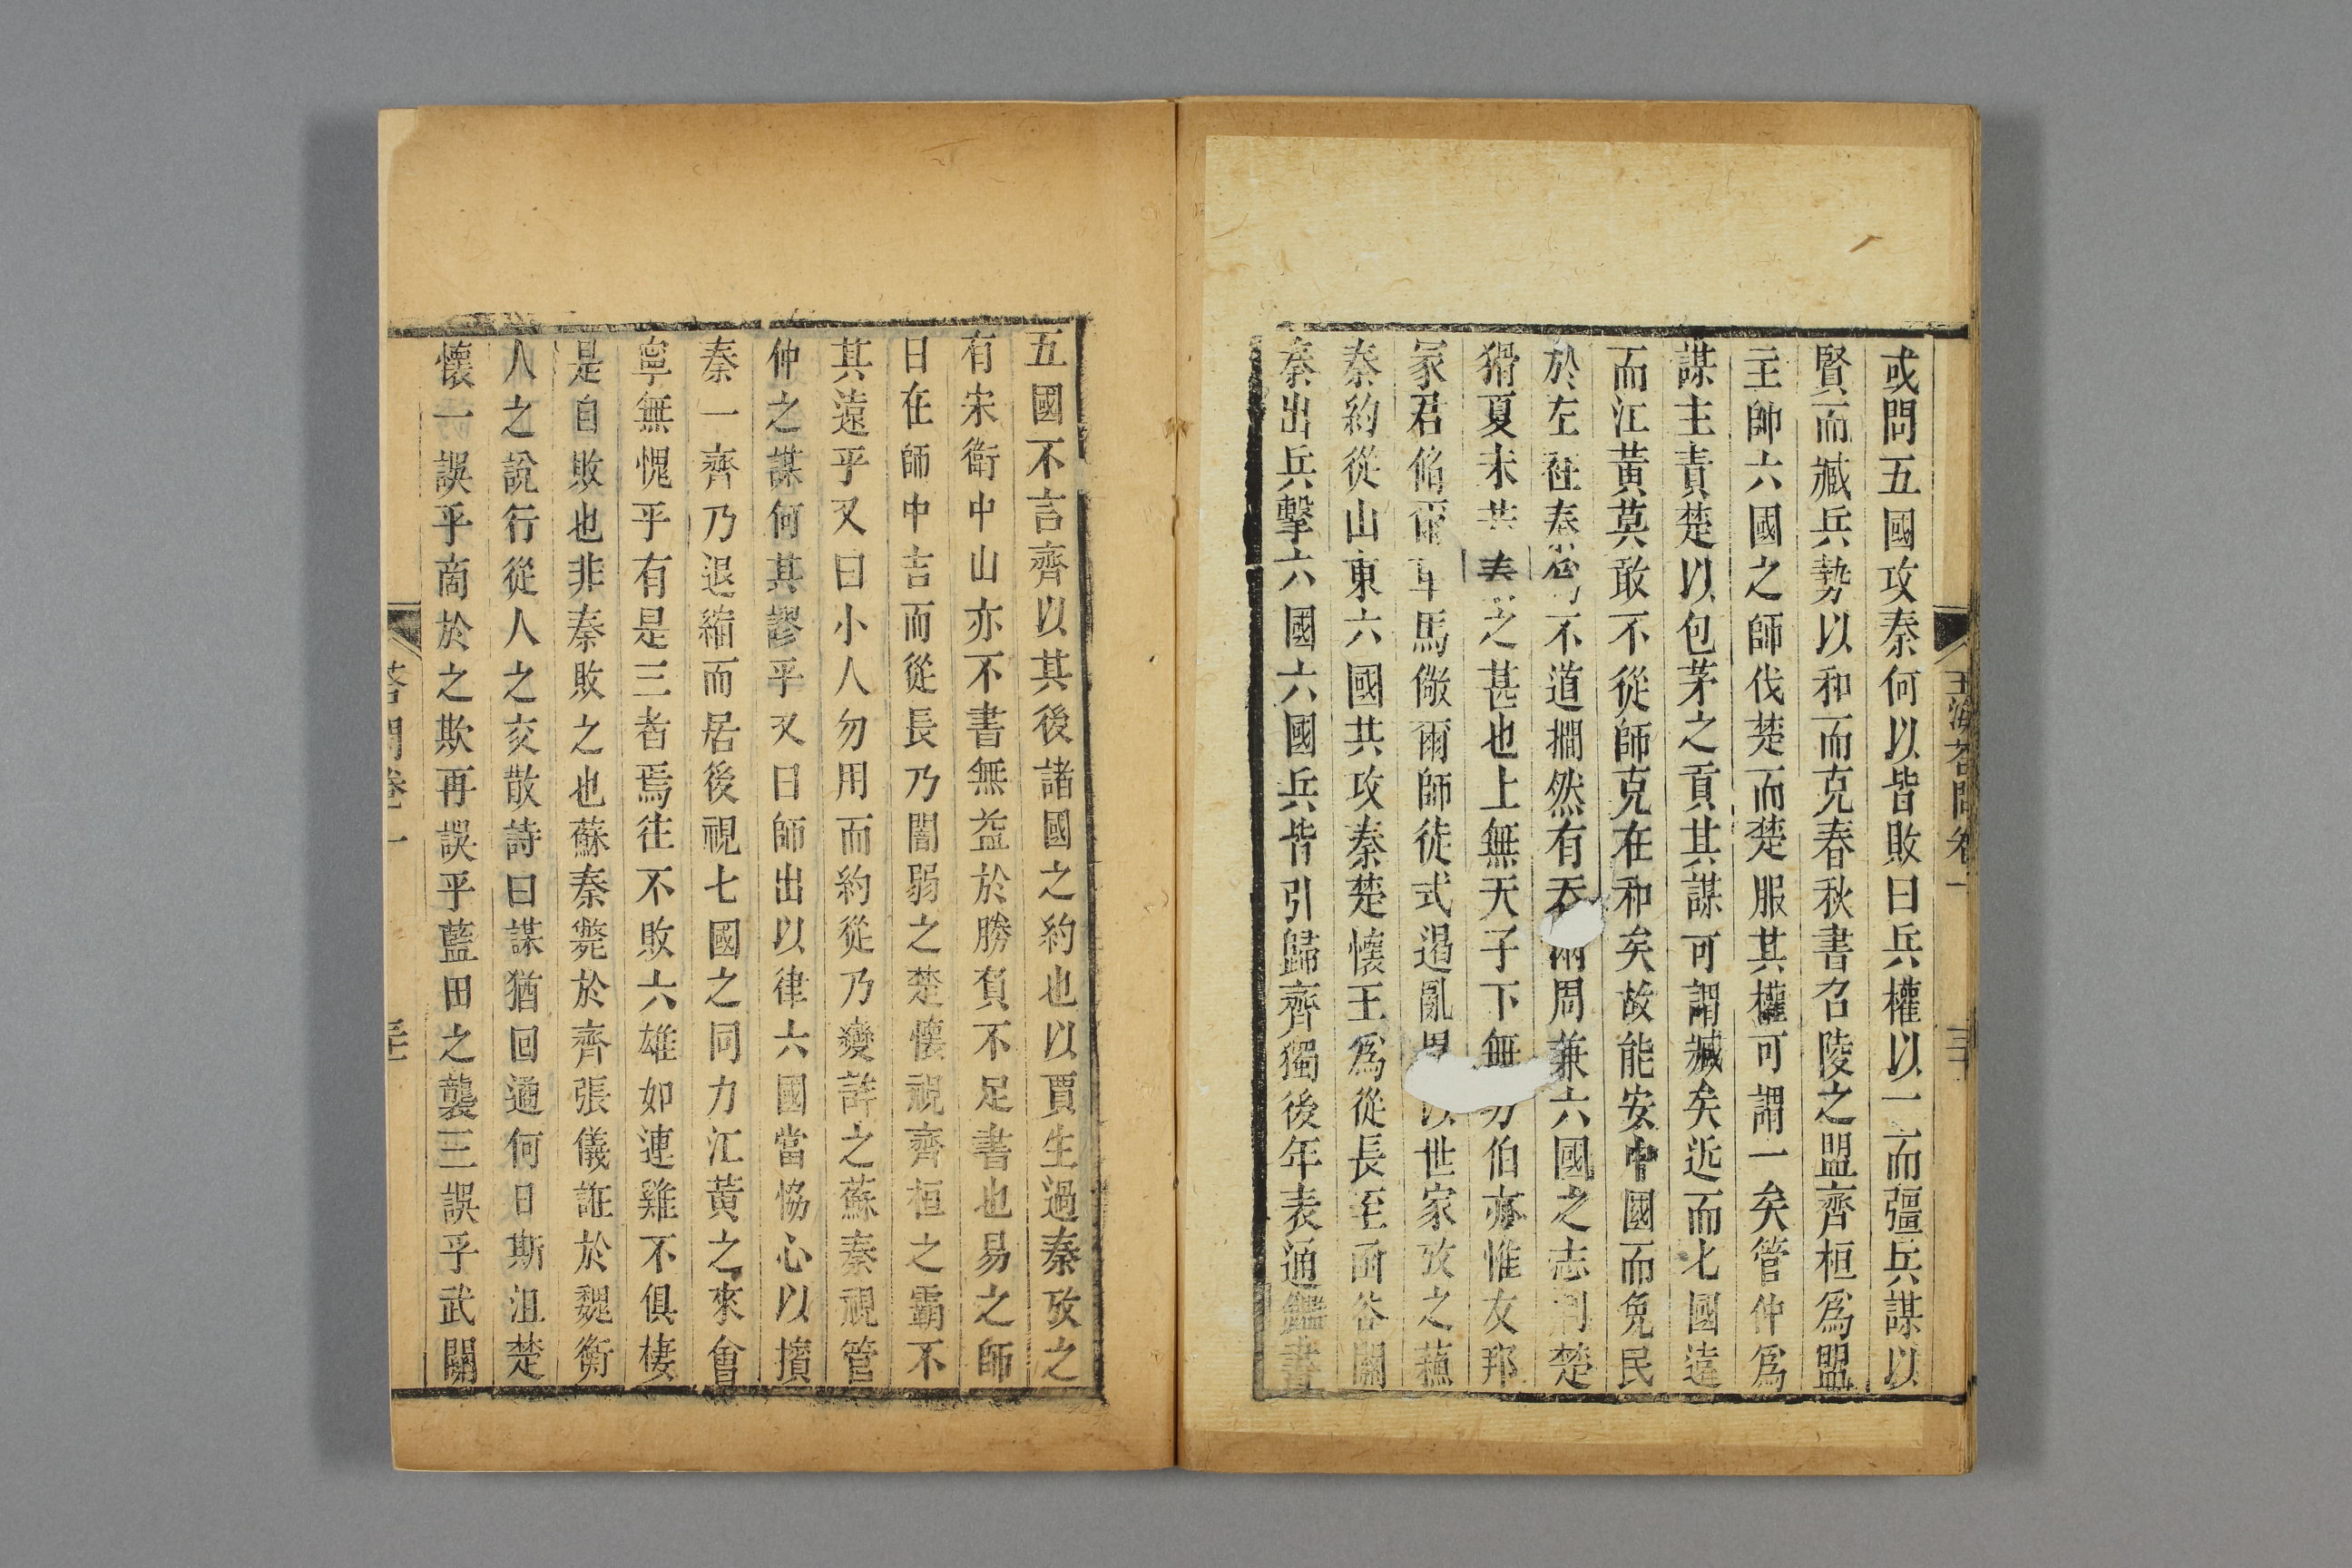 或問五國攻秦何以皆敗曰兵權以一而彊兵謀以
賢而臧兵勢以和而克春秋書召陵之盟齊桓爲盟
主帥六國之師伐楚而楚服其權可謂一矣管仲爲
謀主責楚以包茅之貢其謀可謂臧矣近而七國遠
而江黄莫敢不從師克在和矣故能安中國而免民
於左衽秦爲不道撊然有吞兩周兼六國之志荆楚
猾夏未若之甚也上無天子下無方伯亦惟友邦
冢君脩爾車馬儆爾師徒式遏亂畧以世家攷之蘇
秦約從山東六國共攻秦楚懷王爲從長至函谷關
秦出兵擊六國六國兵皆引歸齊獨後年表通鑑書
玉海答問卷一 三十
五國不言齊以其後諸國之約也以賈生過秦攷之
有宋衛中山亦不書無益於勝負不足書也易之師
曰在師中吉而從長乃闇弱之楚懷視齊桓之霸不
其遠乎又曰小人勿用而約從乃變詐之蘇秦視管
仲之謀何其謬乎又曰師出以律六國當恊心以擯
秦一齊乃退縮而居後視七國之同力江黄之來會
寧無愧乎有是三者焉往不敗六雄如連雞不俱棲
是自敗也非秦敗之也蘇秦斃於齊張儀詐於魏衡
人之說行從人之交散詩曰謀猶回遹何日斯沮楚
懷一誤乎商於之欺再誤乎藍田之襲三誤乎武關
答問卷一